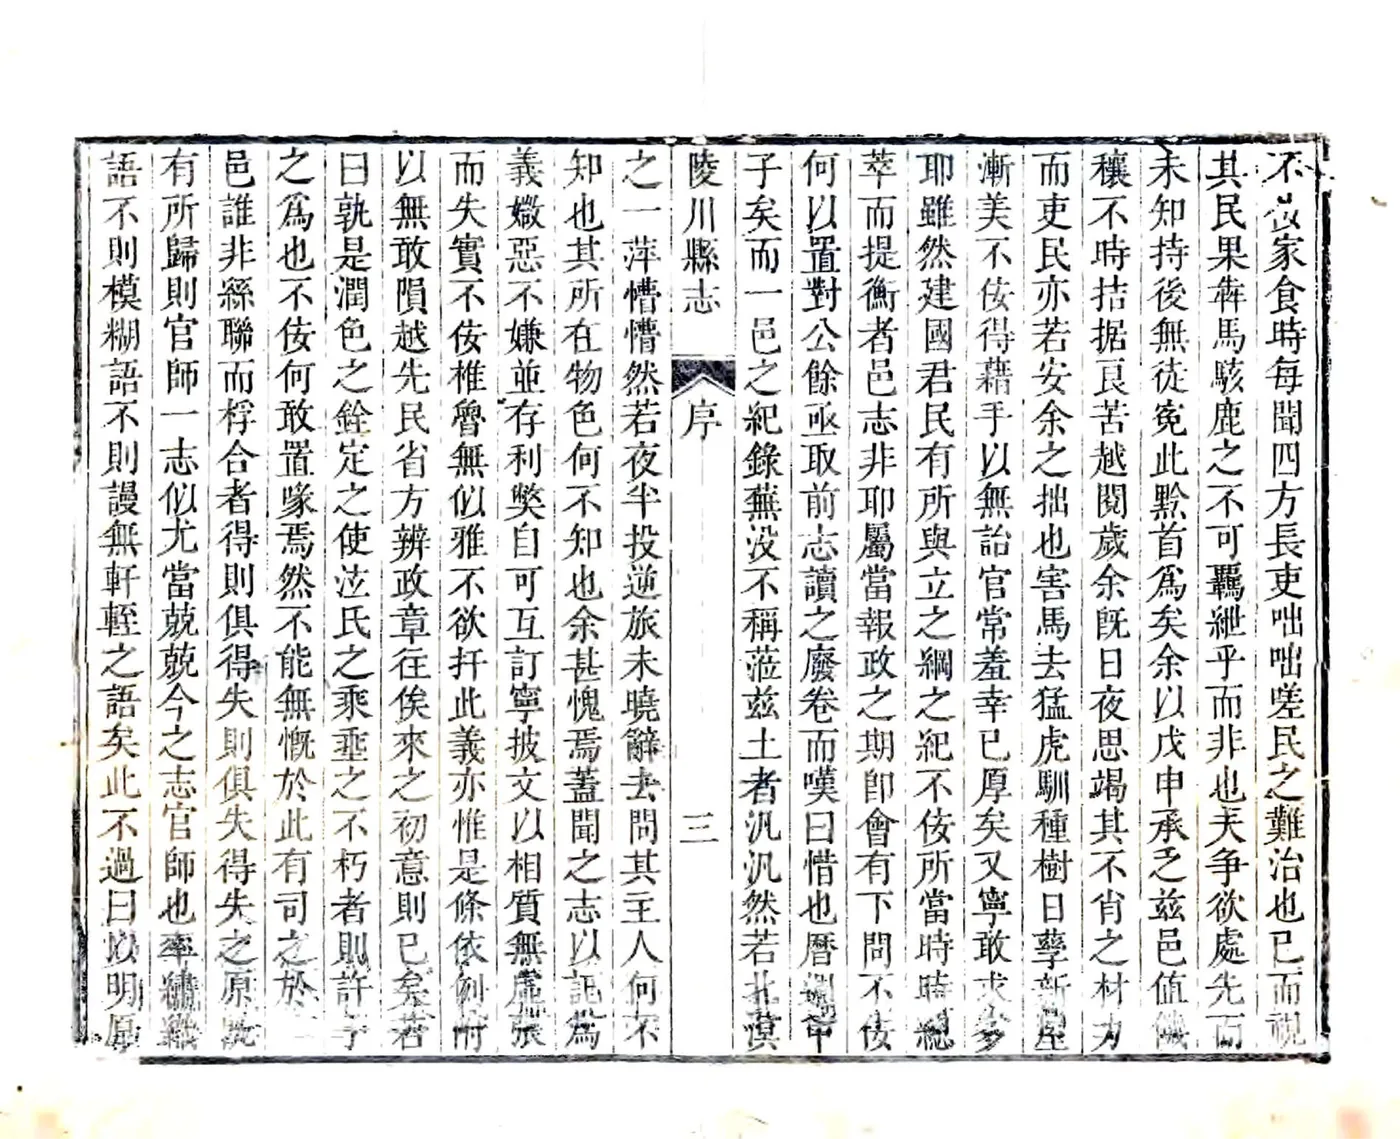 不佞家食時每聞四方長吏咄咄嗟民之難治也已而視
其民果犇馬駭鹿之不可羈紲乎而非也夫爭欲處先而
未知持後無徒寃此黔首爲矣余以戊申承乏兹邑值饑
穰不時拮据艮苦越閱歲余旣日夜思竭其不肖之材力
而吏民亦若安余之拙也害馬去猛虎馴種樹日孳新屋
漸美不佞得藉手以無詒官常羞幸已厚矣又寧敢求多
耶雖然建國君民有所與立之綱之紀不佞所當時時紀
萃而提衡者邑志非耶屬當報政之期卽會有下問不佞
何以置對公餘亟取前志讀之廢卷而嘆曰惜也曆
子矣而一邑之紀錄蕪没不稱蒞兹土者汎汎然若北漠
陵川縣志
序
三
之一萍懵懵然若夜半投逆旅未曉辭去問其主人何不
知也其所在物色何不知也余甚愧焉蓋聞之志以記爲
義媺惡不嫌並存利獘自可互訂寧披文以相質無虛張
而失實不佞椎魯無似雅不欲扞此義亦惟是條依例附
以無敢隕越先民省方辨政章往俟來之初意則已矣若
曰孰是潤色之銓定之使泫氏之乘垂之不朽者則許子
之爲也不佞何敢置喙焉然不能無慨於此有司之於
邑誰非絲聯而桴合者得則俱得失則俱失得失之原
有所歸則官師一志似尤當兢兢今之志官師也率
語不則模糊語不則謾無軒輊之語矣此不過曰以明原